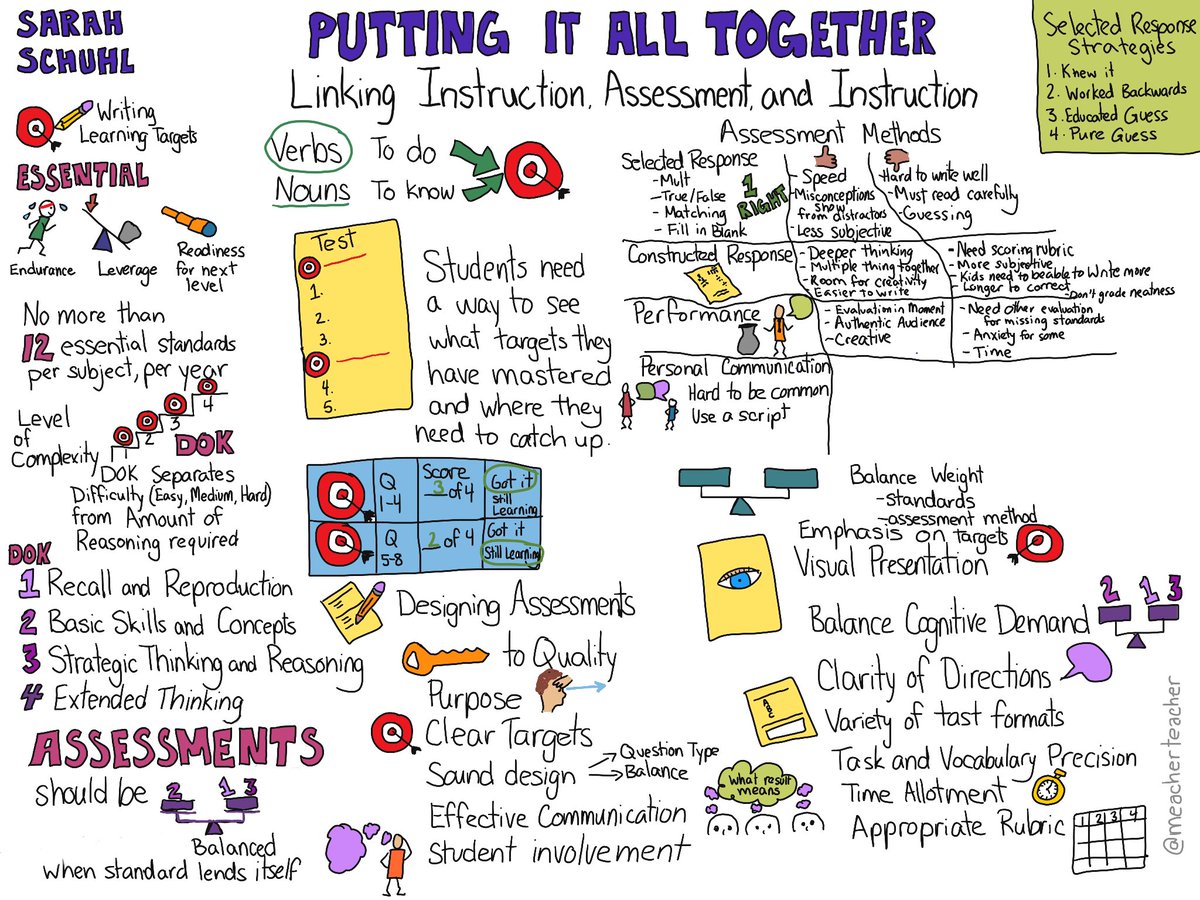 SARAH
SCHUHL
PUTTING IT ALL TOGETHER
Linking Instruction, Assessment, and Instruction
Selected Response
Strategies
1. Knew it
2. Worked Backwards
3. Educated Guess
4. Pure Guess
Writing
Learning Targets
ESSENTIAL
Endurance
Leverage
Readiness
for next
level
No more than
12 essential standards
per subject, per year
Level
of
Complexity
1
2
3
4
DOK
DOK Separates
Difficulty (Easy, Medium, Hard)
from Amount of
Reasoning required
DOK
1 Recall and Reproduction
2 Basic Skills and Concepts
3 Strategic Thinking and Reasoning
4 Extended Thinking
ASSESSMENTS
should be
2 1 3
Balanced
when standard lends itself
Verbs To do
Nouns To know
Test
1.
2.
3.
4.
5.
Students need
a way to see
what targets they
have mastered
and where they
need to catch up.
Q
1-4
Score
3 of 4
Got it
Still
Learning
Q
5-8
2 of 4
Got it
Still Learning
Designing Assessments
to Quality
Purpose
Clear Targets
Sound design
Question Type
Balance
Effective Communication
Student involvement
what result
means
Assessment Methods
Selected Response
-Mult
-True/False
-Matching
-Fill in Blank
1
RIGHT
-Speed
-Misconceptions
show
from distractors
-Less Subjective
-Hard to write well
-Must read carefully
-Guessing
Constructed Response
-Deeper thinking
-Multiple thing together
-Room for creativity
-Easier to write
-Need scoring rubric
-More subjective
-Kids need to be able to write more
-Longer to correct
-Don't grade neatness
Performance
-Evaluation in Moment
-Authentic Audience
-Creative
-Need other evaluation
for missing standards
-Anxiety for some
-Time
Personal Communication
Hard to be common
Use a script
Balance Weight
-standards
-assessment method
Emphasis on targets
Visual Presentation
Balance Cognitive Demand
2 1 3
Clarity of Directions
Variety of tast formats
Task and Vocabulary Precision
Time Allotment
Appropriate Rubric
1 2 3 4
@meacherteacher